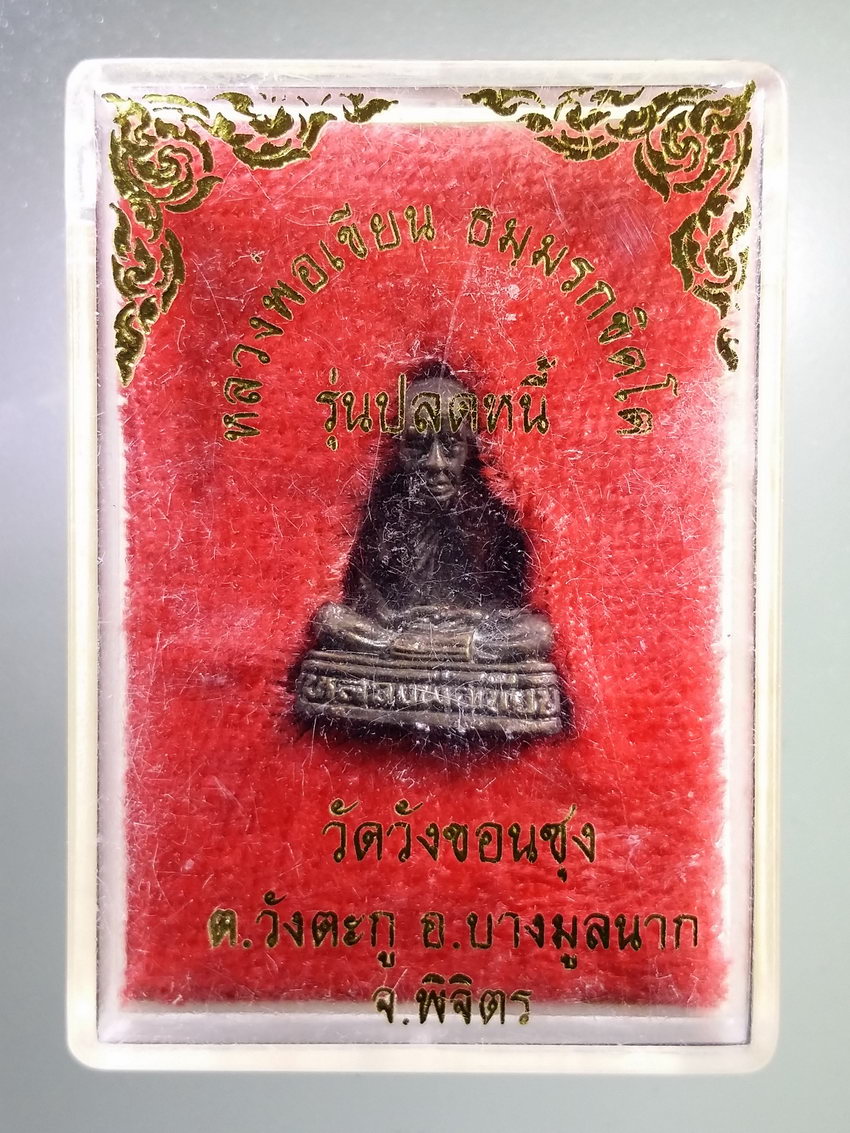 หลวงพอเขียน ธมมรกขิตโต
รุ่นปลดหนี้
หลวงพ่อเขียน
วัดวังขอนชุง
ต.วังตะกู อ.บางมูลนาก
จ.พิจิตร